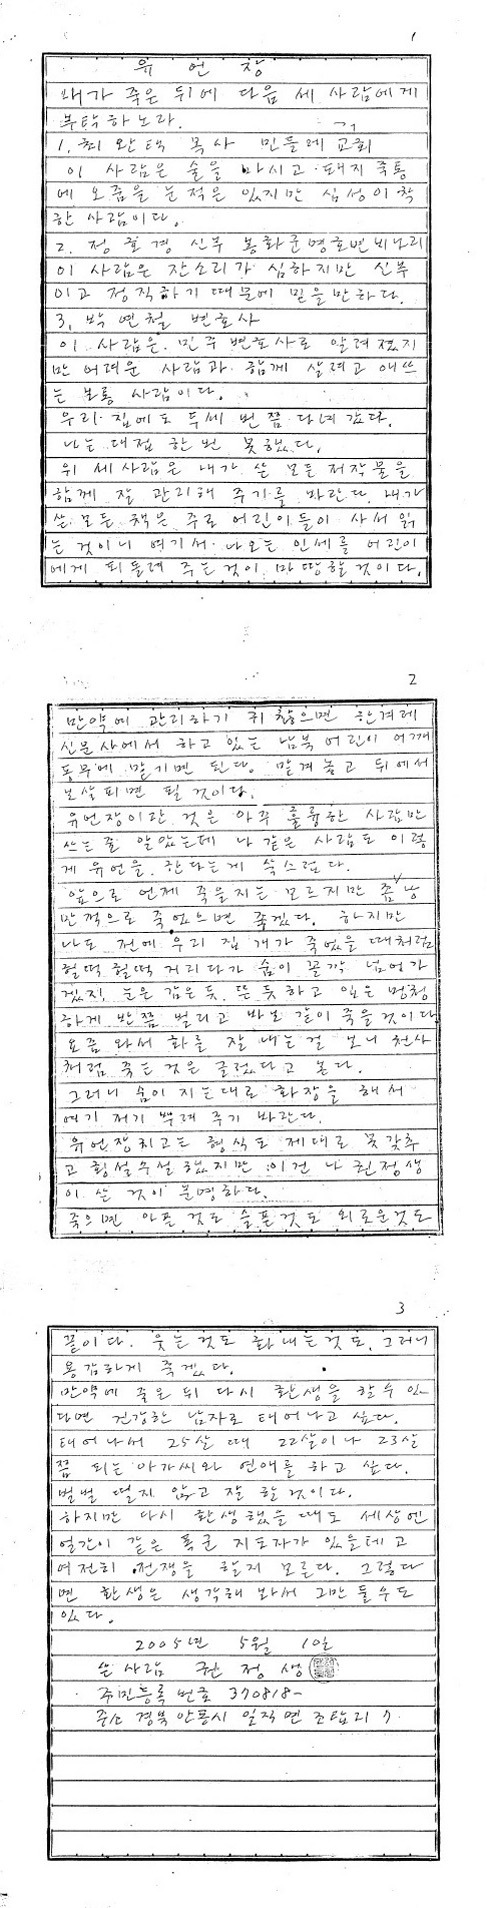 1
유 언 장
내가 죽은 뒤에 다음 세 사람에게
부탁하노라.
1, 최 완 택 목사 민들레 교회
이 사람은 술을 마시고 돼지 죽통
에 오줌을 눈 적은 있지만 심성이 착
한 사람이다.
2. 정 호 경 신부 봉화군 명호면 비나리
이 사람은 잔소리가 심하지만 신부
이고 정직하기 때문에 믿을만하다.
3, 박 연철 변호사
이 사람은 민주 변호사로 알려졌지
만 어려운 사람과 함께 살려고 애쓰
는 보통 사람이다.
우리 집에도 두세 번쯤 다녀갔다.
나는 대접 한번 못했다.
위 세 사람은 내가 쓴 모든 저작물을
함께 잘 관리해 주기를 바란다. 내가
쓴 모든 책은 주로 어린이들이 사서 읽
는 것이니 여기서 나오는 인세를 어린이
에게 되돌려 주는 것이 마땅할 것이다.
2
만약에 관리하기 귀찮으면 한겨레
신문사에서 하고 있는 남북 어린이 어깨
동무에 맡기면 된다. 맡겨 놓고 뒤에서
보살피면 될 것이다.
유언장이란 것은 아주 훌륭한 사람만
쓰는 줄 알았는데 나 같은 사람도 이렇
게 유언을 한다는게 쑥스럽다.
앞으로 언제 죽을지는 모르지만 좀 낭
만적으로 죽었으면 좋겠다. 하지만
나도 전에 우리 집 개가 죽었을 때처럼
헐떡 헐떡 거리다가 숨이 꼴깍 넘어가
겠지. 눈은 감은 듯 뜬 듯하고 입은 멍청
하게 반쯤 벌리고 바보 같이 죽을 것이다
요즘 와서 화를 잘 내는 걸 보니 천사
처럼 죽는 것은 글렀다고 본다.
그러니 숨이 지는대로 화장을 해서
여기 저기 뿌려 주기 바란다.
유언장 치고는 형식도 제대로 못갖추
고 횡설수설 했지만 이건 나 권정생
이 쓴 것이 분명하다.
죽으면 아픈 것도 슬픈 것도 외로운 것도
3
끝이다. 웃는 것도 화내는 것도. 그러니
용감하게 죽겠다.
만약에 죽은 뒤 다시 환생을 할 수 있
다면 건강한 남자로 태어나고 싶다.
태어나서 25살 때 22살이나 23살
쯤 되는 아가씨와 연애를 하고 싶다.
벌벌 떨지 않고 잘 할 것이다.
하지만 다시 환생했을 때도 세상엔
얼간이 같은 폭군 지도자가 있을테고
여전히 전쟁을 할지 모른다. 그렇다
면 환생은 생각해 봐서 그만 둘 수도
있다.
2005년 5월 10일
쓴 사람 권 정 생
주민등록 번호 370818-
주소 경북 안동시 일직면 조탑리 7